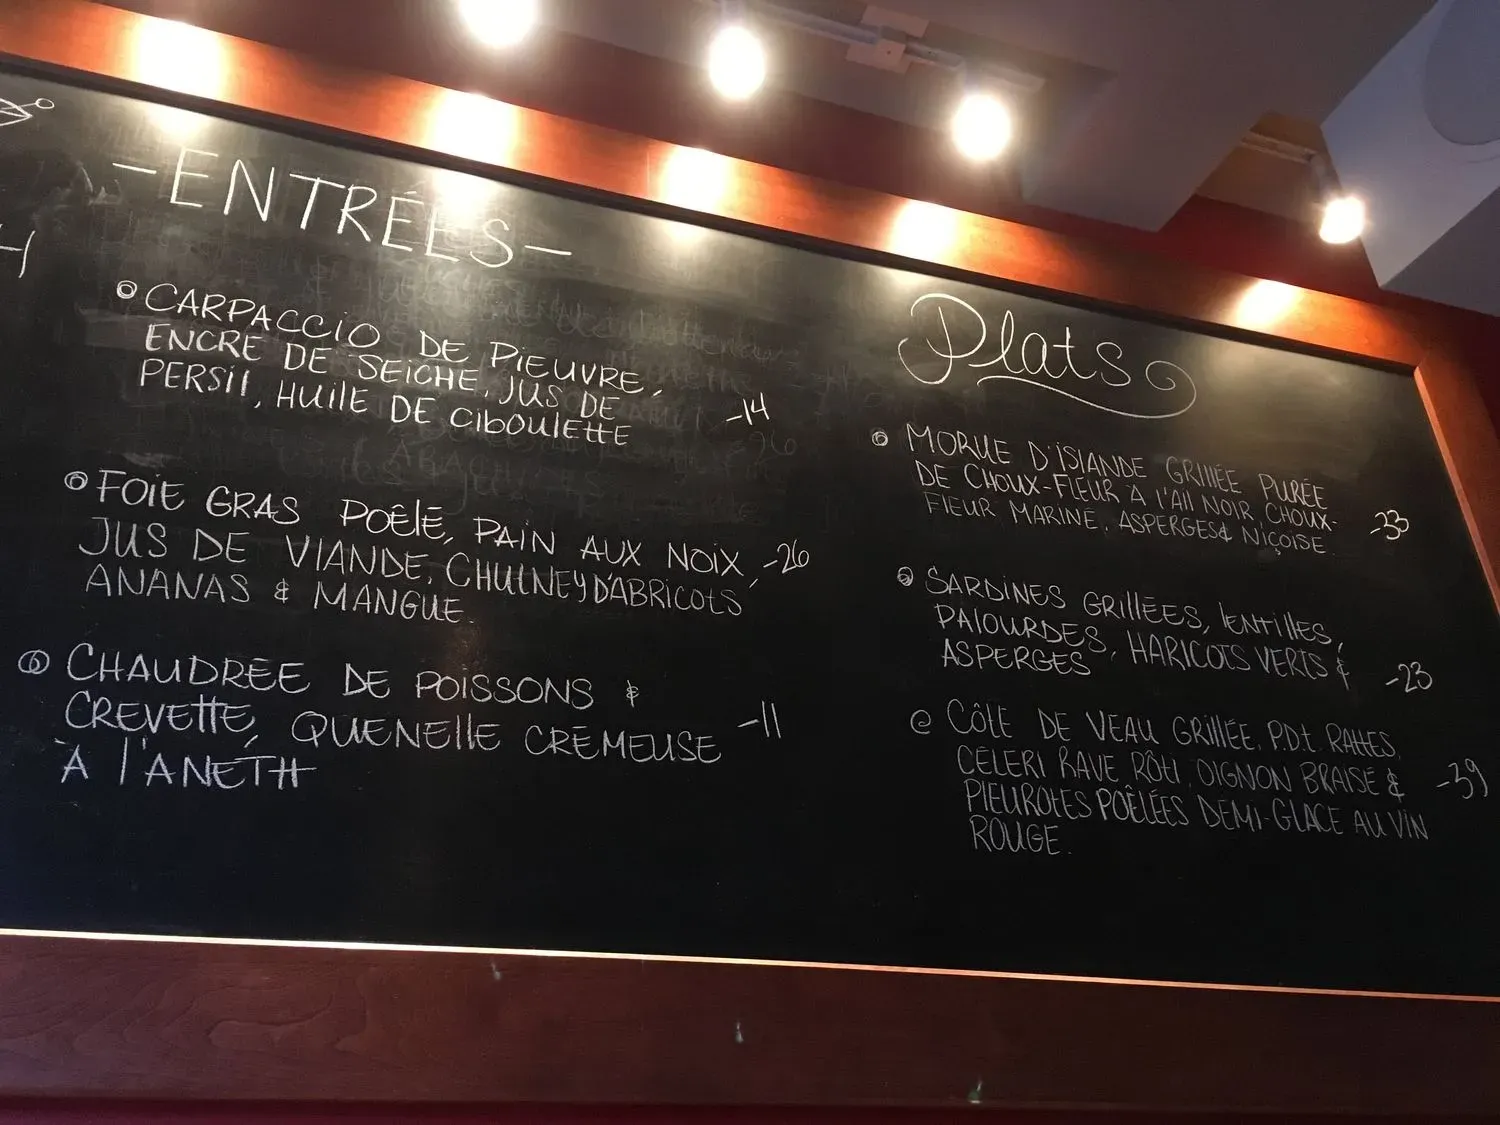 -ENTRÉES-
CARPACCIO DE PIEUVRE,
ENCRE DE SEICHE, JUS DE
PERSIL, HUILE DE CIBOULETTE
-14
FOIE GRAS POÊLÉ, PAIN AUX NOIX,
JUS DE VIANDE, CHUTNEY D'ABRICOTS,
ANANAS & MANGUE.
-26
CHAUDREE DE POISSONS &
CREVETTE, QUENELLE CREMEUSE
À L'ANETH
-11
Plats
MORUE D'ISLANDE GRILLÉE PURÉE
DE CHOUX-FLEUR À L'AIL NOIR, CHOUX-
FLEUR MARINÉ, ASPERGES & NIÇOISE.
-33
SARDINES GRILLÉES, LENTILLES,
PALOURDES, HARICOTS VERTS &
ASPERGES
-23
CÔTE DE VEAU GRILLÉE, P.D.T. RATTES,
CELERI RAVE RÔTI, OIGNON BRAISÉ &
PLEUROTES POÊLÉES DEMI-GLACE AU VIN
ROUGE.
-39